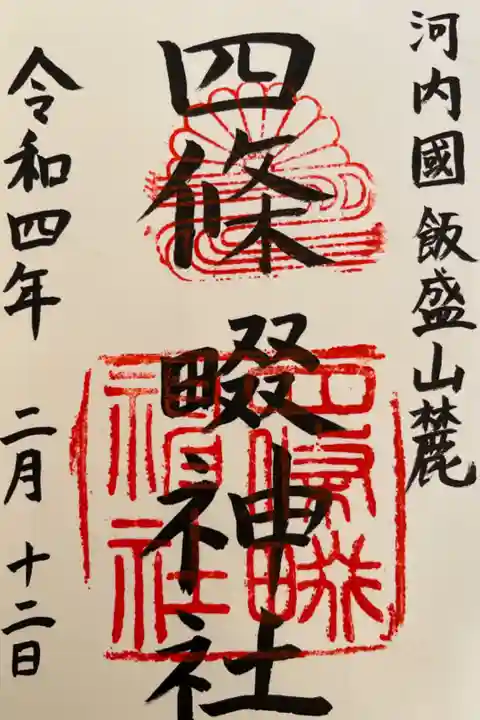 河内國飯盛山麓
四條畷神社
令和四年 二月 十二日
四條畷
神社